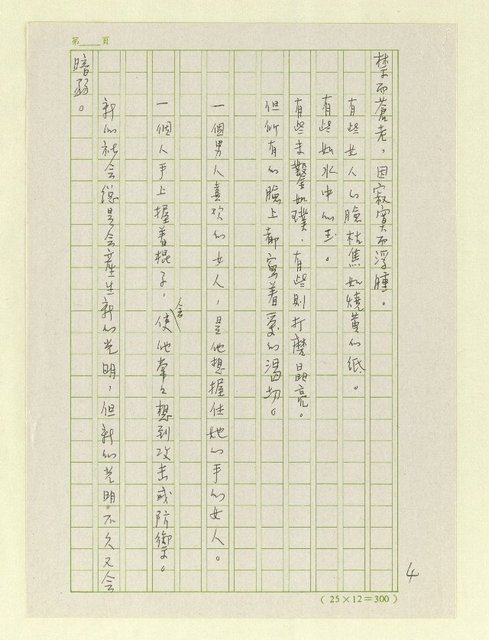 第　頁
禁而蒼老，因寂寞而浮腫。
有些女人的臉枯焦如燒黃的紙。
有些如水中的玉。
有些未鑿如璞，有些則打磨晶亮。
但所有的臉上都寫着愛的渴切。
一個男人喜歡的女人，是他想握住她的手的女人。
一個人手上握着棍子，會使他常々想到攻击或防御。
新的社会總是会產生新的光明，但新的光明不久又会
暗弱。
4
（25×12＝300）